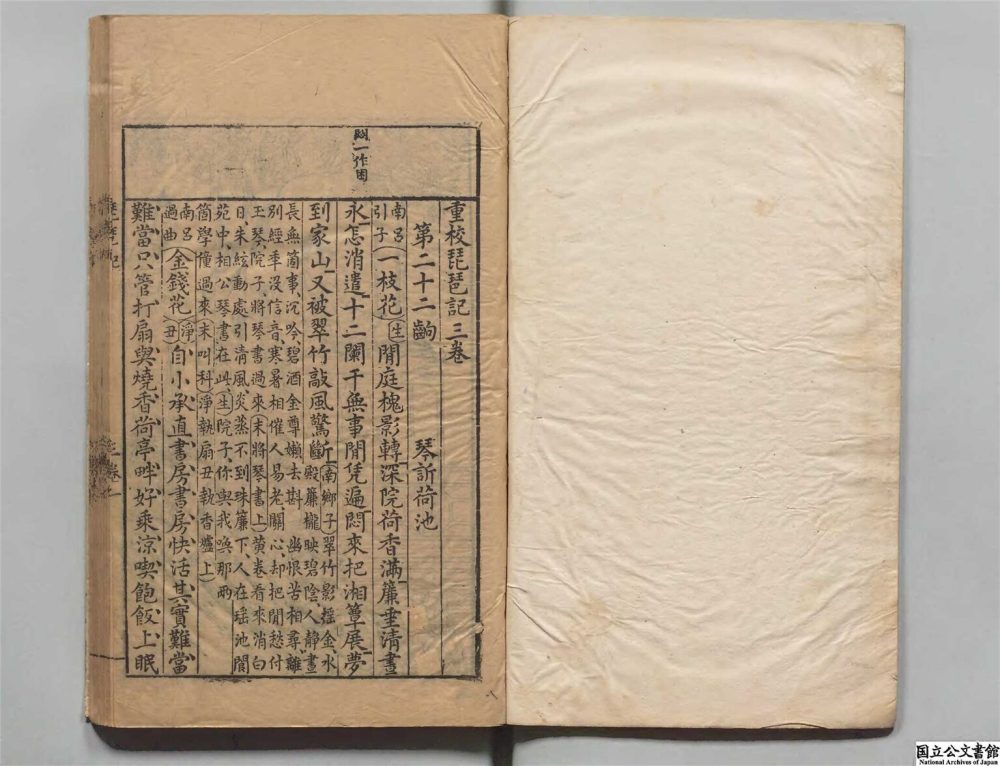 重校琵琶記三卷
第二十二齣　琴訴荷池
南呂引子 一枝花 生 閒庭槐影轉深院荷香滿簾垂清晝
永怎消遣十二闌干無事閒凭遍悶來把湘簟展夢
到家山又被翠竹敲風驚斷 南鄉子 翠竹影搖金水
殿簾櫳映碧陰人靜晝
長無箇事沉吟碧酒金尊嬾去斟 幽恨苦相尋離
別經年沒信音寒暑相催人易老關心却把閒愁付
玉琴院子將琴書過來 末將琴書上 黃卷看來消白
日朱絃動處引清風炎蒸不到珠簾下人在瑤池閬
苑中相公琴書在此 生 院子你與我喚那兩
箇學僮過來 末叫科 淨執扇丑執香爐上
南呂過曲 金錢花 淨丑 自小承直書房書房快活其實難當
難當只管打扇與燒香荷亭畔好乘涼喫飽飯上眠
一作困
国立公文書館
National Archives of Japan